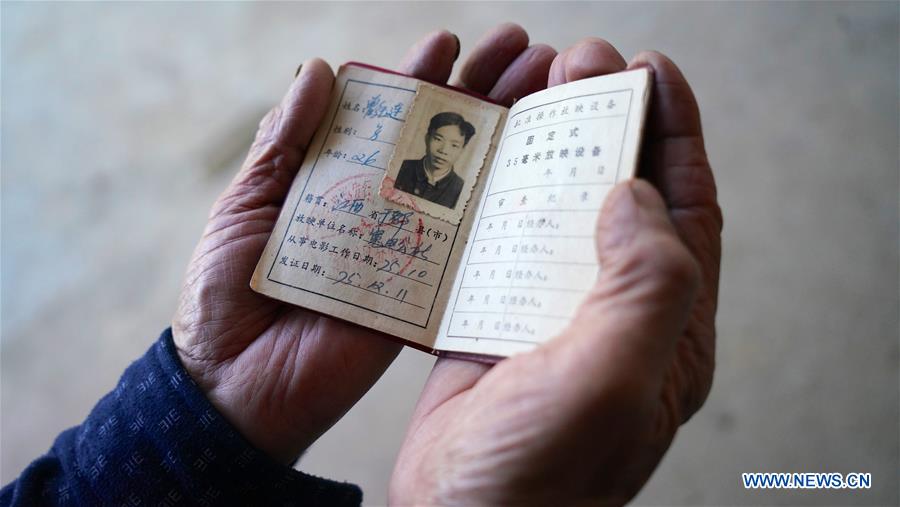 姓名:
性别: 男
年龄: 26
籍贯: 江西 省 于都 县(市)
放映单位名称: 宽田公社
从事电影工作日期: 75.10
发证日期: 75.12.11
批准操作放映设备
固定式
35毫米放映设备
年 月 日
审查纪录
年 月 日经办人:
年 月 日经办人:
年 月 日经办人:
年 月 日经办人:
年 月 日经办人:
WWW.NEWS.CN